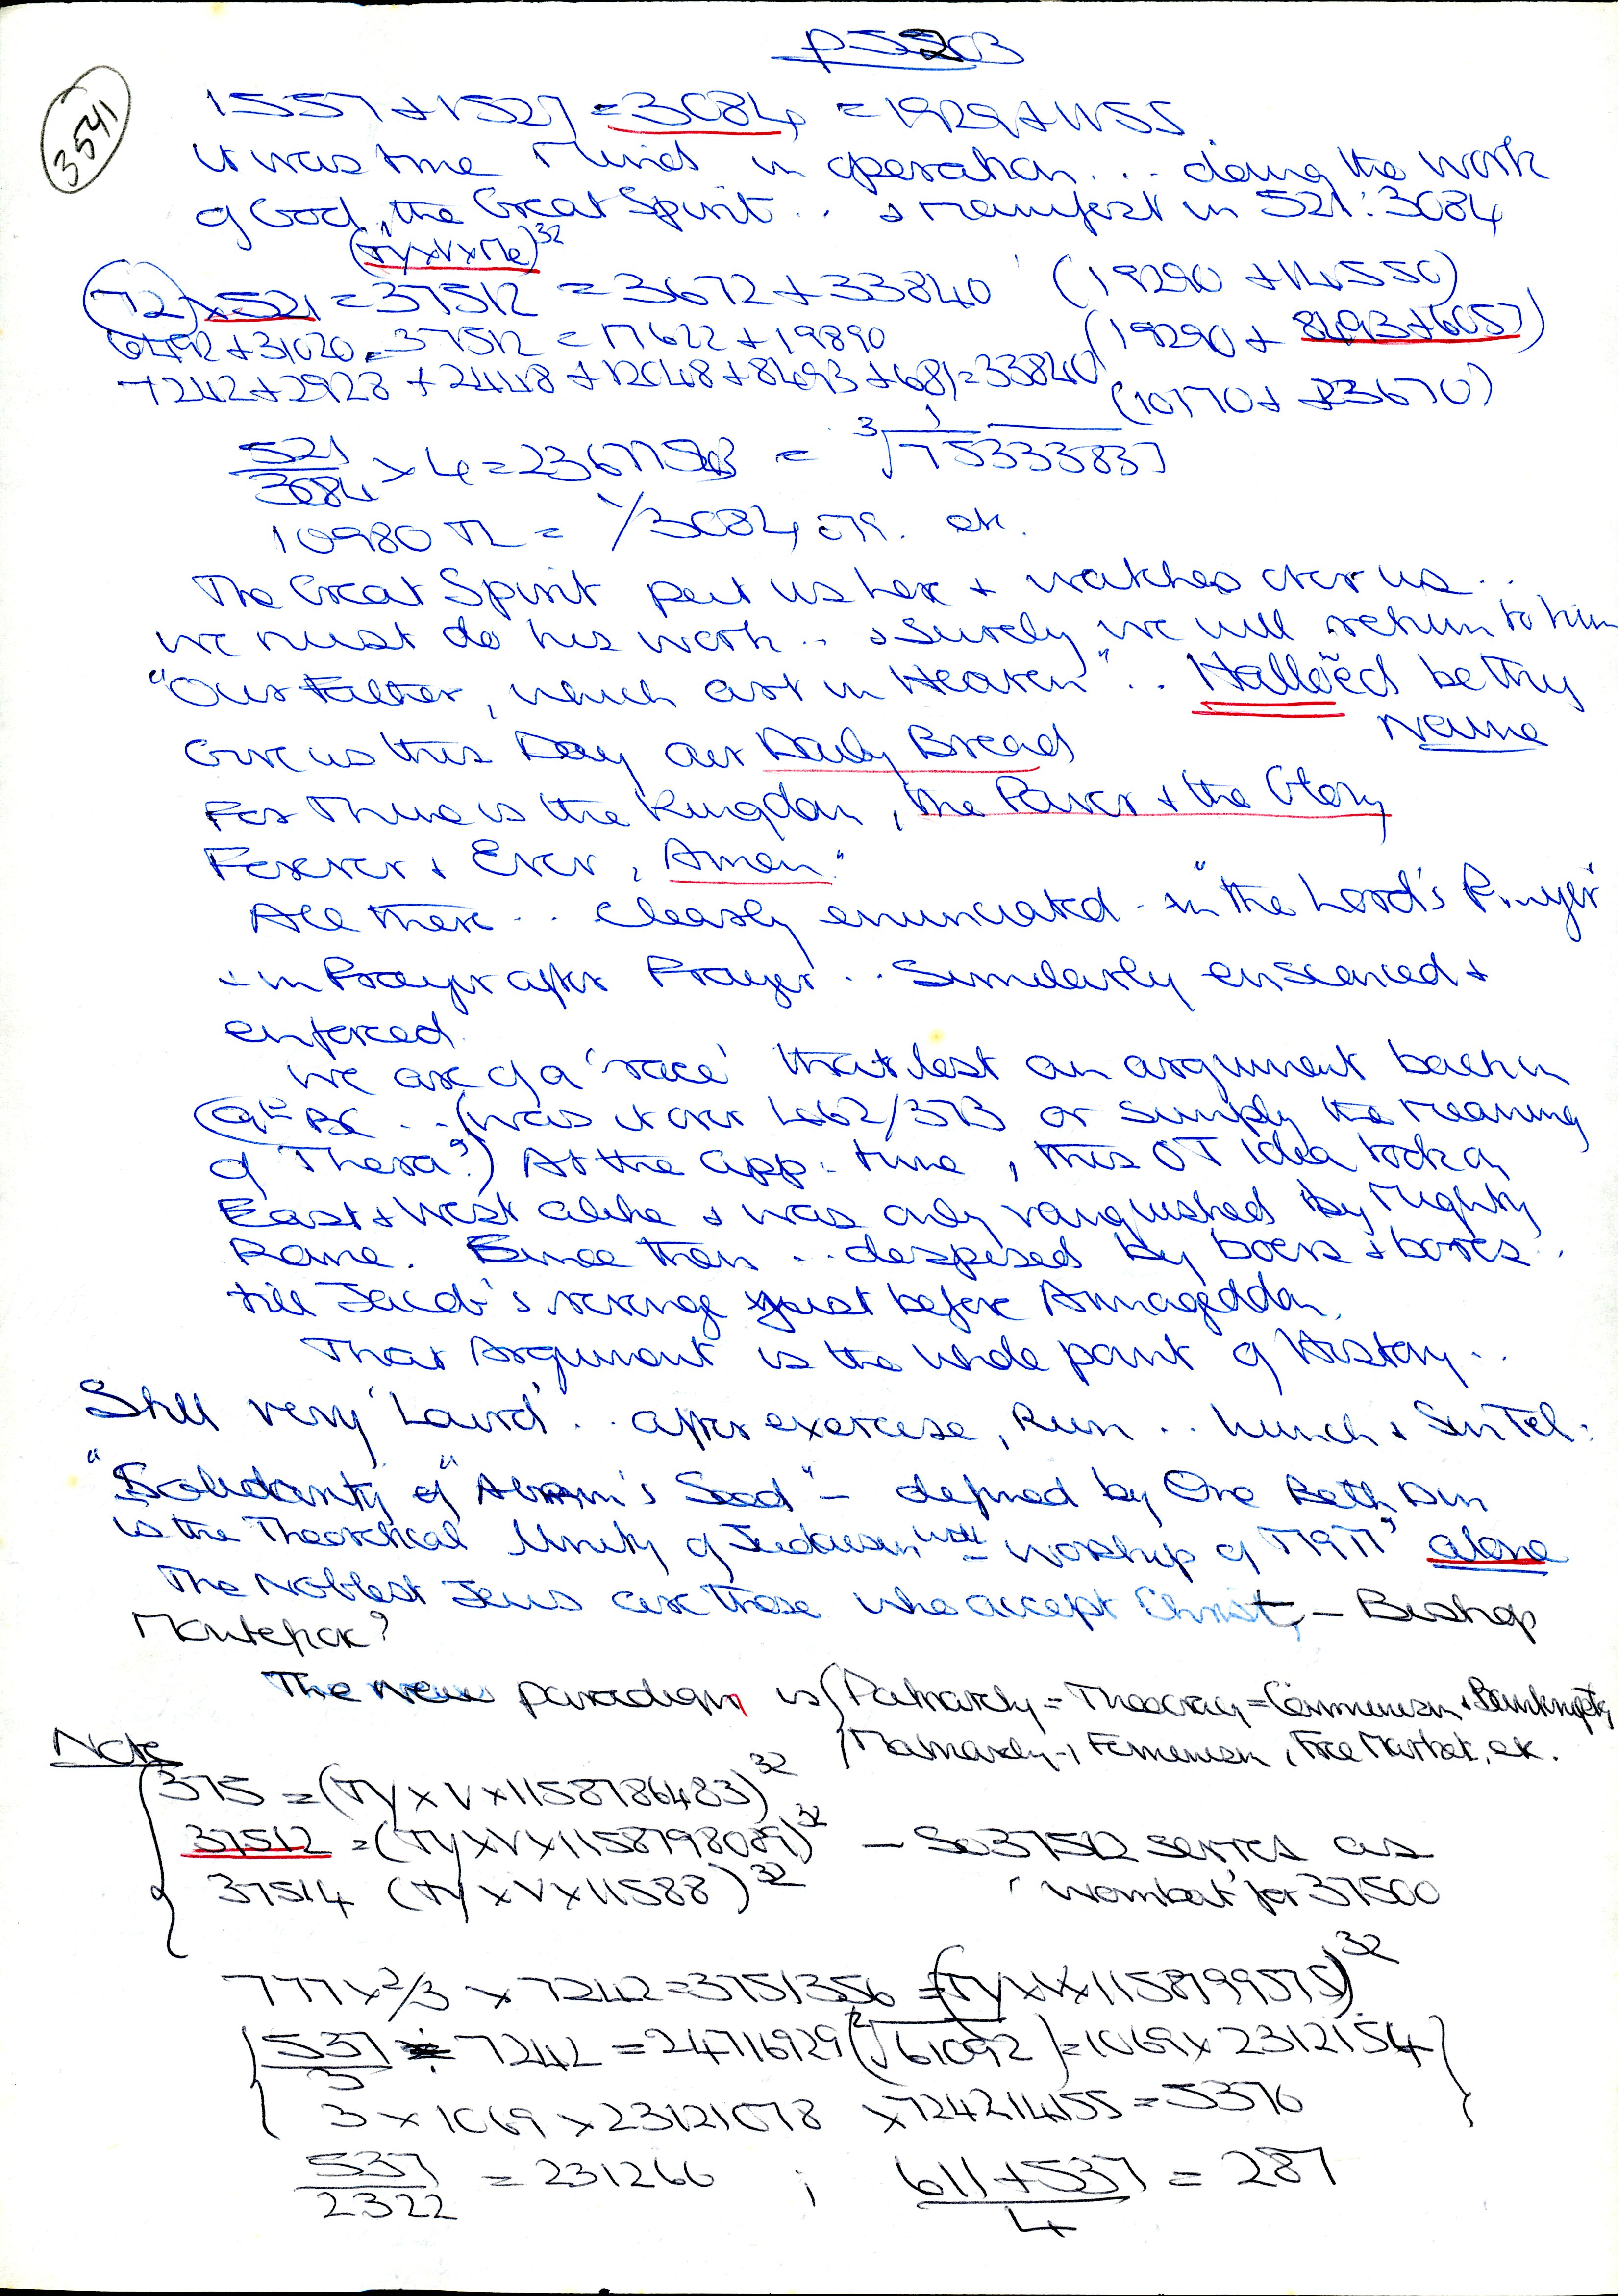 3541
1557 + 1527 = 3084 = 1929 + 1155
it was time Mind in operation... doing the work
of God, the Great Spirit.. & manifest in 521:3084
(Ty x V x Me)³²
72 x 521 = 37512 = 3672 + 33840 (19290 + 14550)
6492 + 31020 = 37512 = 17622 + 19890 (19290 + 8493 + 6057)
7242 + 2928 + 2448 + 12048 + 8493 + 681 = 33840 (10170 + 23670)
521/3084 x 4 = = ³√75333837
10980 TL = 1/3084,079. etc.
The Great Spirit put us here & watches over us..
we must do his work.. & surely we will return to him
"Our Father, which art in Heaven".. Hallowed be thy
Name
Give us this Day our Daily Bread
For Thine is the Kingdom, the Power & the Glory
Forever & Ever, Amen."
All there.. clearly enunciated - in "the Lord's Prayer"
- in Prayer after Prayer.. Similarly &
enforced.
We are of a 'race' that lost an argument back in
BC.. (was it over or simply the meaning
of Thera?) At the app. time, this OT idea took on
East & West alike & was only vanquished by Mighty
Rome. Since then.. despised by boers & bores..
till Jacob's revenge just before Armageddon.
That Argument is the whole point of History..
Still very 'Laird'.. after exercise, Run.. lunch & Sun Tel:
"Solidarity of "Abram's Seed" - defined by One Beth Din
is the Theoretical Unity of Judaism with - worship of alone
The Noblest Jews are those who accept Christ, - Bishop
Montefiore?
The new paradigm is (Patriarchy = Theocracy = Communism & Bankruptcy
(Matriarchy -, Feminism, Free Market, etc.
Note
375 = (Ty x V x 1158786483)³²
37512 = (Ty x V x 1158798089)³² - So 37512 serves as
37514 (Ty x V x 11588)³² 'wombat' for 37500
777 x 2/3 x 7242 = 3751356 = (Ty x V x 1158799575)³²
537/3 ÷ 7242 = 24716929 (²√61092) = 1069 x 2312154
3 x 1069 x 23121078 x 724214155 = 5376
537/2322 = 231266 ; 611 + 537/4 = 287